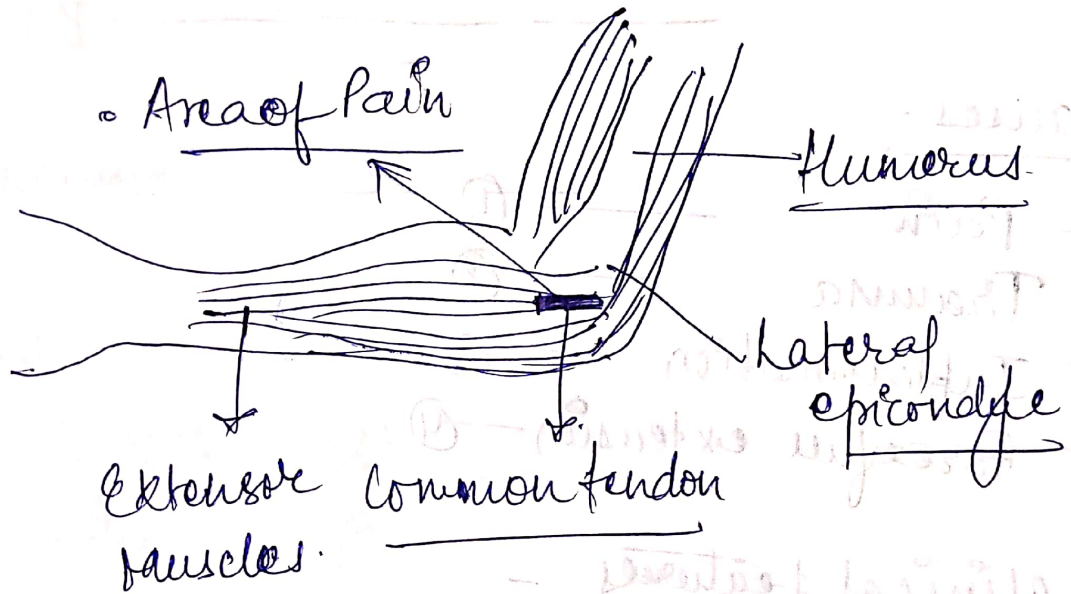 • Area of Pain
Humorus.
Lateral
epicondyle
Extensor
muscles.
Common tendon